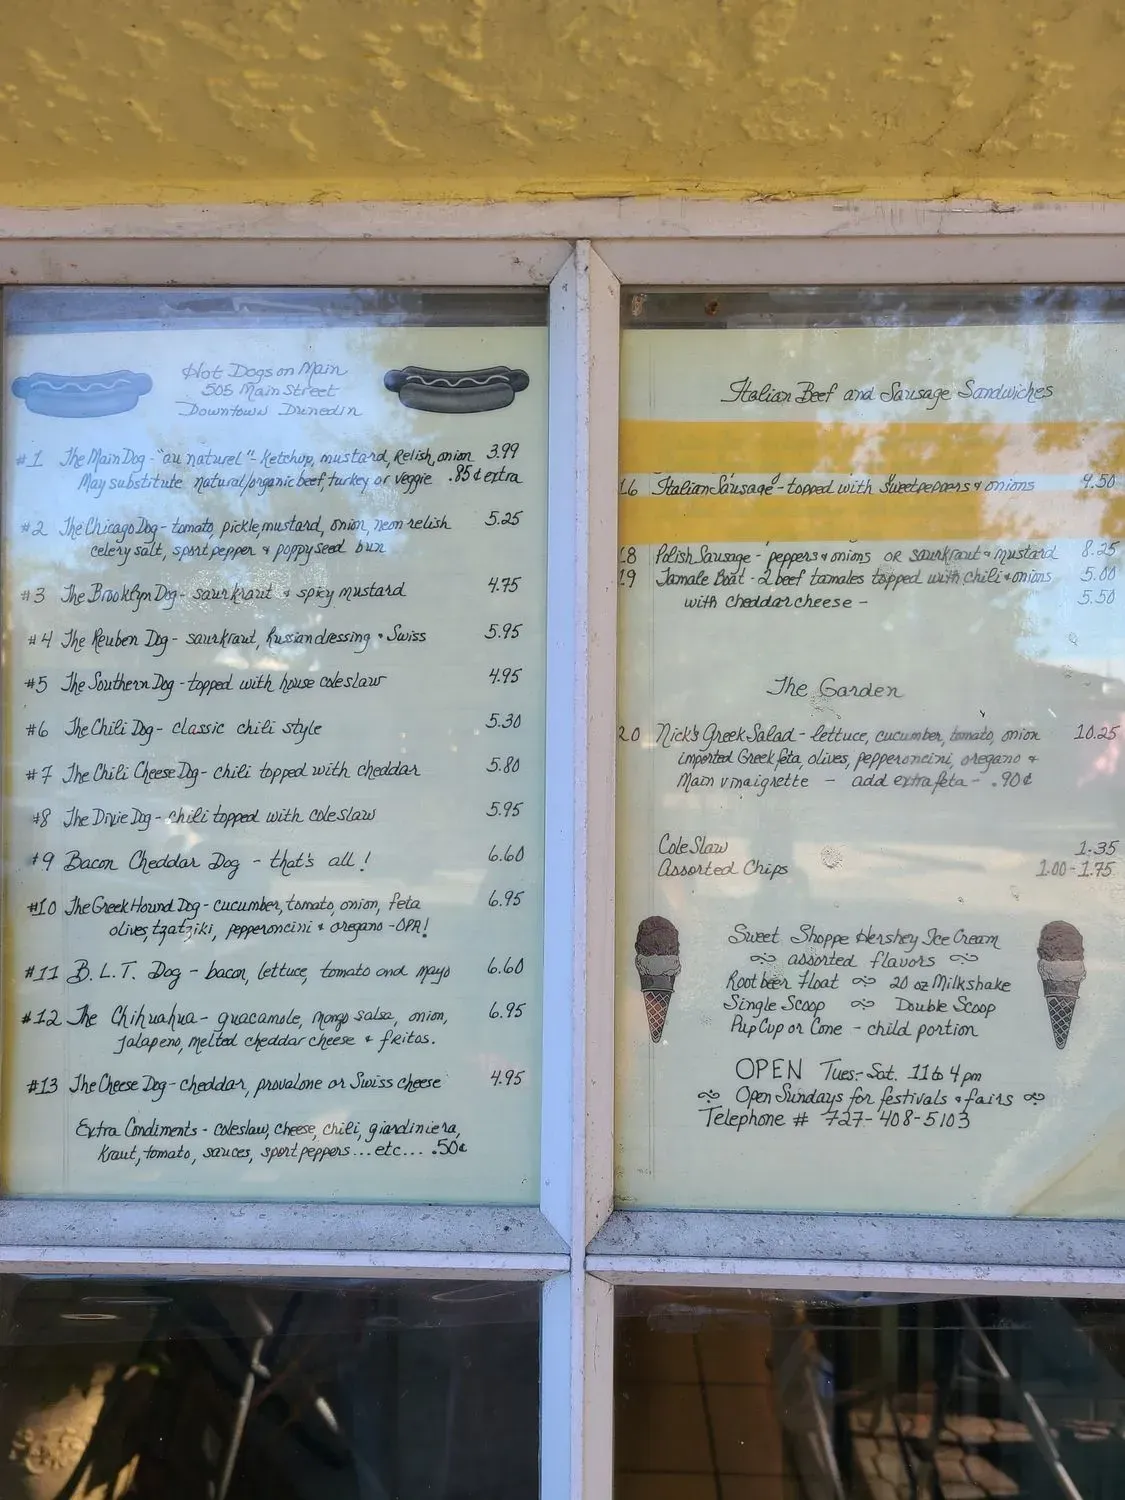 Hot Dogs on Main
505 Main Street
Downtown Dunedin
#1 The Main Dog - "au naturel" - Ketchup, mustard, Relish, onion 3.99
May substitute natural/organic beef, turkey or veggie .85¢ extra
#2 The Chicago Dog - tomato, pickle, mustard, onion, neon relish 5.25
celery salt, sport pepper & poppy seed bun
#3 The Brooklyn Dog - saurkraut & spicy mustard 4.75
#4 The Reuben Dog - saurkraut, Russian dressing & Swiss 5.95
#5 The Southern Dog - topped with house coleslaw 4.95
#6 The Chili Dog - classic chili style 5.30
#7 The Chili Cheese Dog - chili topped with cheddar 5.80
#8 The Dixie Dog - chili topped with coleslaw 5.95
#9 Bacon Cheddar Dog - that's all! 6.60
#10 The Greek Hound Dog - cucumber, tomato, onion, feta 6.95
olives, tzatziki, pepperoncini & oregano - OPA!
#11 B.L.T. Dog - bacon, lettuce, tomato and mayo 6.60
#12 The Chihuahua - guacamole, mango salsa, onion, 6.95
jalapeno, melted cheddar cheese & fritos.
#13 The Cheese Dog - cheddar, provalone or Swiss cheese 4.95
Extra Condiments - coleslaw, cheese, chili, giardiniera,
kraut, tomato, sauces, sport peppers...etc... .50¢
Italian Beef and Sausage Sandwiches
16 Italian Sausage - topped with sweet peppers & onions 9.50
18 Polish Sausage - peppers & onions OR saurkraut & mustard 8.25
19 Tamale Boat - 2 beef tamales topped with chili & onions 5.00
with cheddar cheese - 5.50
The Garden
20 Nick's Greek Salad - lettuce, cucumber, tomato, onion 10.25
imported Greek feta, olives, pepperoncini, oregano &
Main vinaigrette - add extra feta - .90¢
Cole Slaw 1.35
Assorted Chips 1.00-1.75
Sweet Shoppe Hershey Ice Cream
assorted flavors
Rootbeer Float 20 oz Milkshake
Single Scoop Double Scoop
Pup Cup or Cone - child portion
OPEN Tues.- Sat. 11 to 4 pm
Open Sundays for festivals & fairs
Telephone # 727-408-5103